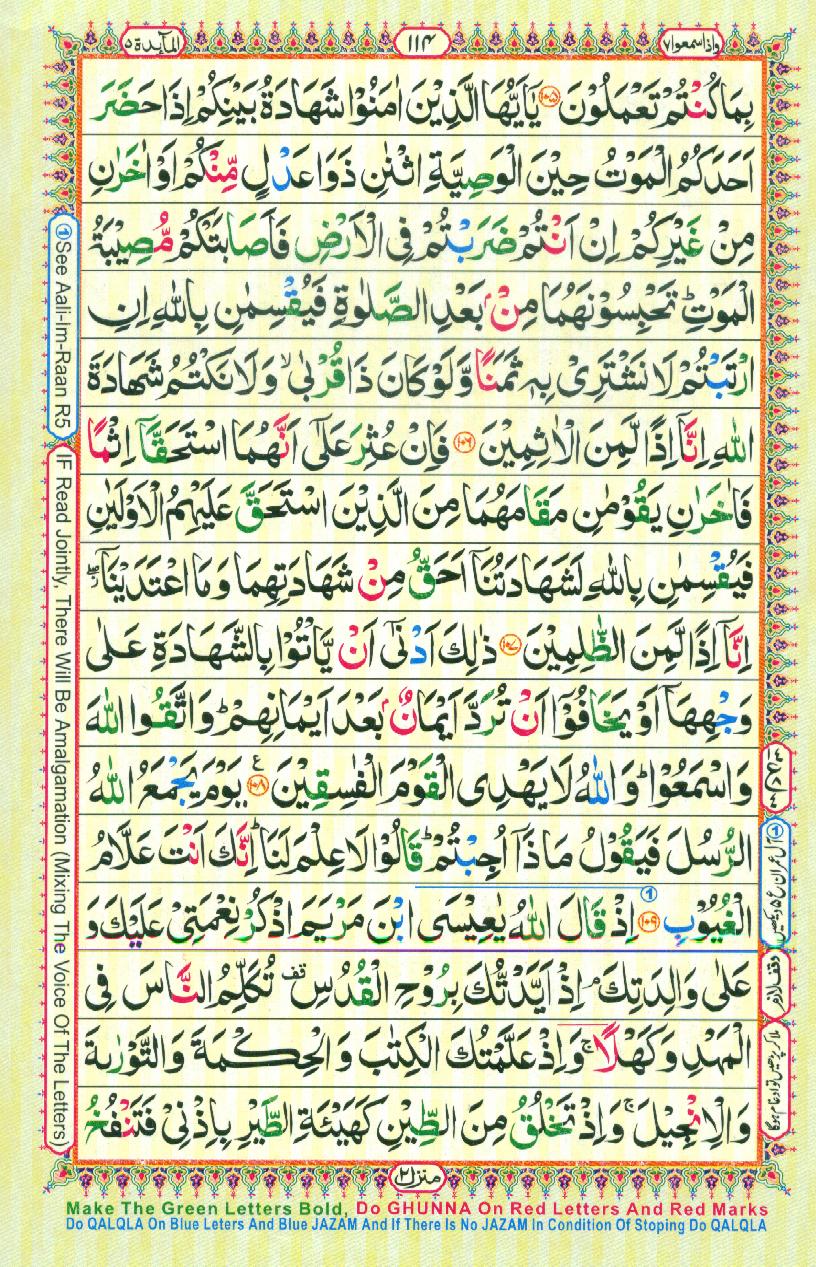 واذاسمعوا۷
۱۱۴
المآىِٕدة۵
بِمَا كُنْتُمْ تَعْمَلُوْنَ ۱۰۵ یٰۤاَیُّهَا الَّذِیْنَ اٰمَنُوْا شَهَادَةُ بَیْنِكُمْ اِذَا حَضَرَ
اَحَدَكُمُ الْمَوْتُ حِیْنَ الْوَصِیَّةِ اثْنٰنِ ذَوَا عَدْلٍ مِّنْكُمْ اَوْ اٰخَرٰنِ
مِنْ غَیْرِكُمْ اِنْ اَنْتُمْ ضَرَبْتُمْ فِی الْاَرْضِ فَاَصَابَتْكُمْ مُّصِیْبَةُ
الْمَوْتِ ؕ تَحْبِسُوْنَهُمَا مِنْۢ بَعْدِ الصَّلٰوةِ فَیُقْسِمٰنِ بِاللّٰهِ اِنِ
ارْتَبْتُمْ لَا نَشْتَرِیْ بِهٖ ثَمَنًا وَّلَوْ كَانَ ذَا قُرْبٰی ۙ وَلَا نَكْتُمُ شَهَادَةَ
اللّٰهِ اِنَّاۤ اِذًا لَّمِنَ الْاٰثِمِیْنَ ۱۰۶ فَاِنْ عُثِرَ عَلٰۤی اَنَّهُمَا اسْتَحَقَّاۤ اِثْمًا
فَاٰخَرٰنِ یَقُوْمٰنِ مَقَامَهُمَا مِنَ الَّذِیْنَ اسْتَحَقَّ عَلَیْهِمُ الْاَوْلَیٰنِ
فَیُقْسِمٰنِ بِاللّٰهِ لَشَهَادَتُنَاۤ اَحَقُّ مِنْ شَهَادَتِهِمَا وَمَا اعْتَدَیْنَاۤ ۖؗ
اِنَّاۤ اِذًا لَّمِنَ الظّٰلِمِیْنَ ۱۰۷ ذٰلِكَ اَدْنٰۤی اَنْ یَّاْتُوْا بِالشَّهَادَةِ عَلٰی
وَجْهِهَاۤ اَوْ یَخَافُوْۤا اَنْ تُرَدَّ اَیْمَانٌۢ بَعْدَ اَیْمَانِهِمْ ؕ وَاتَّقُوا اللّٰهَ
وَاسْمَعُوْا ؕ وَاللّٰهُ لَا یَهْدِی الْقَوْمَ الْفٰسِقِیْنَ ۱۰۸ ع یَوْمَ یَجْمَعُ اللّٰهُ
الرُّسُلَ فَیَقُوْلُ مَاذَاۤ اُجِبْتُمْ ؕ قَالُوْا لَا عِلْمَ لَنَا ؕ اِنَّكَ اَنْتَ عَلَّامُ
الْغُیُوْبِ ۱۰۹ ① اِذْ قَالَ اللّٰهُ یٰعِیْسَی ابْنَ مَرْیَمَ اذْكُرْ نِعْمَتِیْ عَلَیْكَ وَ
عَلٰی وَالِدَتِكَ ۘ اِذْ اَیَّدْتُّكَ بِرُوْحِ الْقُدُسِ قف تُكَلِّمُ النَّاسَ فِی
الْمَهْدِ وَكَهْلًا ۚ وَاِذْ عَلَّمْتُكَ الْكِتٰبَ وَالْحِكْمَةَ وَالتَّوْرٰىةَ
وَالْاِنْجِیْلَ ۚ وَاِذْ تَخْلُقُ مِنَ الطِّیْنِ كَهَیْـَٔةِ الطَّیْرِ بِاِذْنِیْ فَتَنْفُخُ
① See Aali-Im-Raan R5
IF Read Jointly, There Will Be Amalgamation (Mixing The Voice Of The Letters)
وقف لازم
منزل۲
Make The Green Letters Bold, Do GHUNNA On Red Letters And Red Marks
Do QALQLA On Blue Leters And Blue JAZAM And If There Is No JAZAM In Condition Of Stoping Do QALQLA